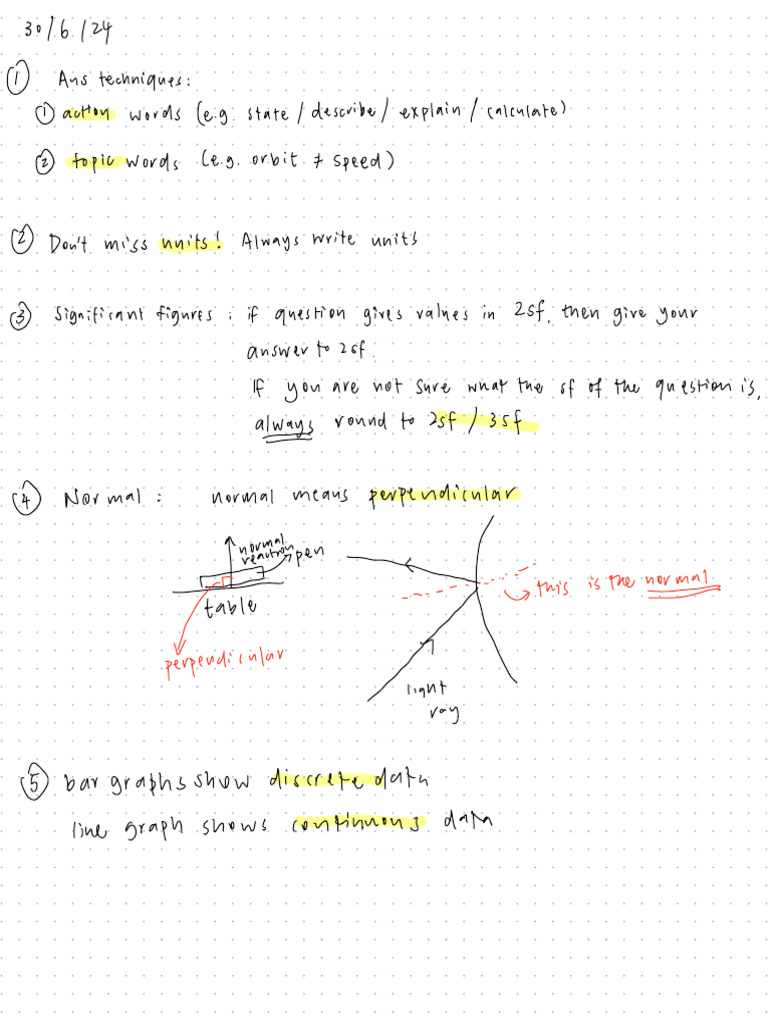 30/6/24
① Ans techniques:
① action words (e.g. state / describe / explain / calculate)
② topic words (e.g. orbit ≠ speed)
② Don't miss units! Always write units
③ Significant figures : if question gives values in 2sf, then give your
answer to 2sf.
If you are not sure what the sf of the question is,
always round to 2sf / 3sf
④ Normal : normal means perpendicular
normal
reaction
pen
table
perpendicular
this is the normal
light
ray
⑤ bar graphs show discrete data
line graph shows continuous data